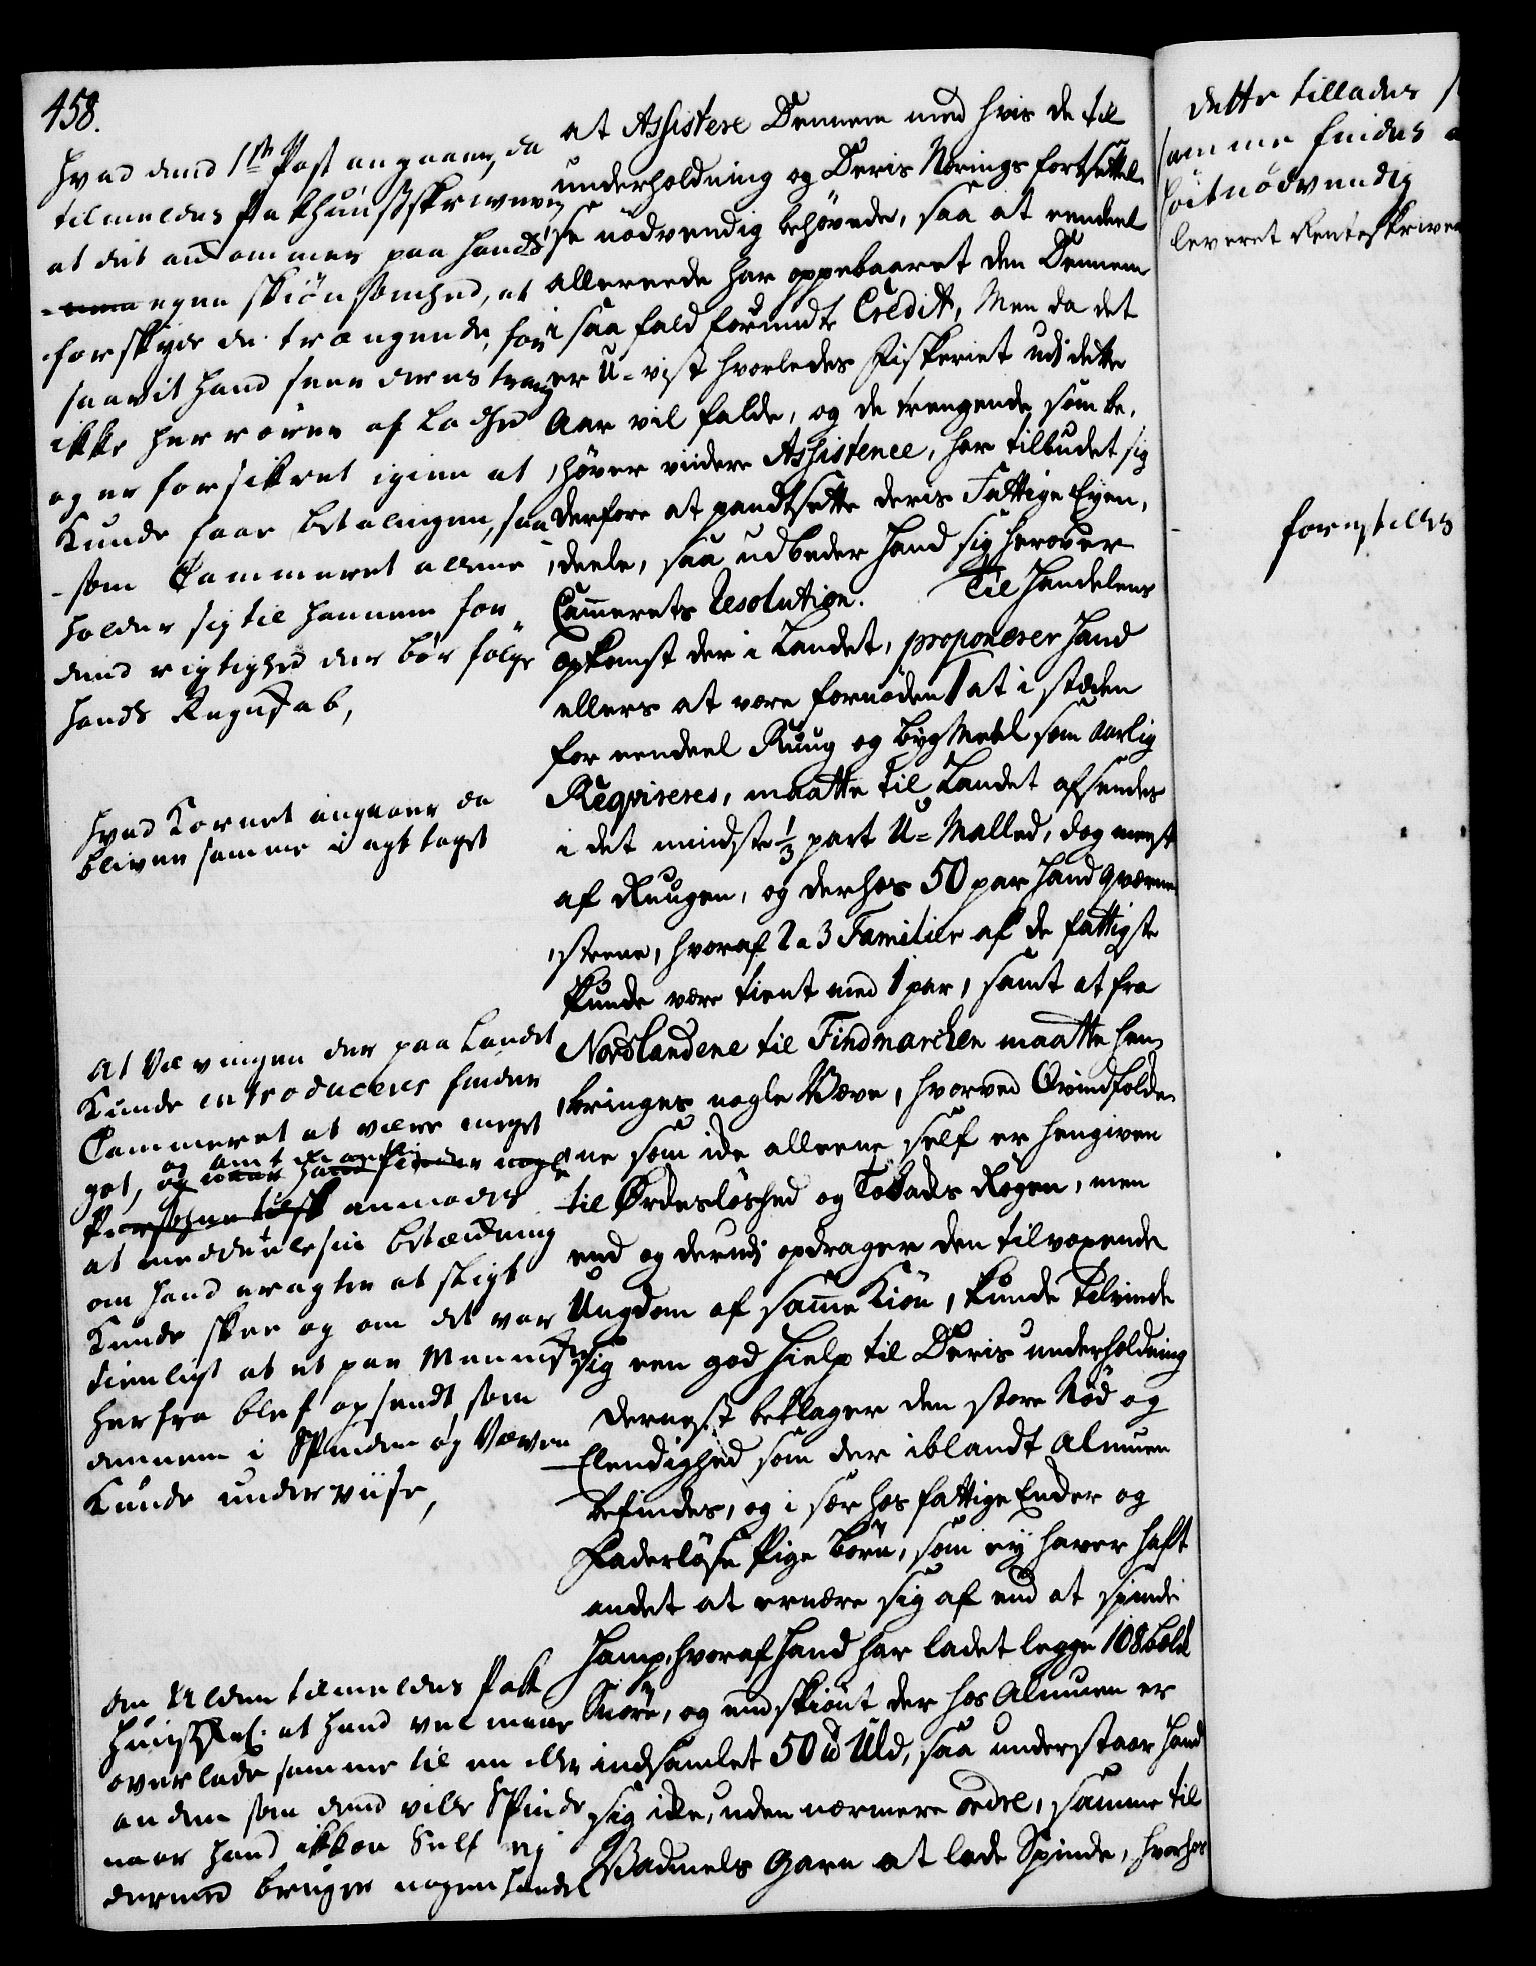 458.
hvad dend 1ste Post angaaer, da
tilmeldes Pakhuusskriveren
at det ankommer paa hands
egen skiønsomhed, at
forskyde de trængende, for
saavit hand seer deres trang
ikke herrører af Ladhed
og er forsikret igien at
Kunde faae betalingen, saa
som Cammeret allene
holder sig til hannem for
dend rigtighed der bør følge
hands Regnskab,
hvad Kornet angaaer da
bliver samme i agt taget
At Vævingen der paa Landet
Kunde introduceres finder
Cammeret at være meget
got, og
anmodes
at meddeele sin betænkning
om hand eragter at sligt
Kunde skee og om det var
tienligt at et par Mennisker
herfra blef opsendt som
dennem i Spinden og Væven
Kunde underviise,
Om Ulden tilmeldes Pak
huuskr: at hand vel maae
overlade samme til en eller
anden som dend ville Spinde
naar hand ikkun Self ej
dermed bruger nogen handel
at Assistere Dennem med hvis de til
underholdning og Deris Nærings fortsættel,
se nødvendig behøvede, saa at eendeel
allereede har oppebaaret den Dennem
i saa fald forundte Credit, Men da det
er U-vist hvorledes Fiskeriet udi dette
Aar vil falde, og de trengende som be,
høver viidere Assistence, har tilbudet sig
derfore at pandtsette deris Fattige Eyen,
deele, saa udbeder hand sig herover
Camerets Resolution. Til Handelens
opkomst der i Landet, proponerer hand
ellers at være fornøden at i stæden
for eendeel Ruug og bygMeel som aarlig
Reqvireres, maatte til Landet afsendes
i det mindste 1/3 part U-Malled, dog meest
af Ruugen, og derhos 50 par Hand qværne
steene, hvoraf 2 a 3 Familier af de fattigste
kunde være tient med 1 par, samt at fra
Nordlandene til Findmarcken maatte hen
bringes nogle Væve, hvorved Qvindfolde
ne som icke alleene self er hengiven
til Ørdesløshed og Tobacks Røgen, men
end og derudi opdrager den tilvoxende
Ungdom af same Kiøn, kunde tilvinde
sig een god hielp til Deris underholdning
dernest beklager den store Nød og
Elendighed som der iblandt Almuen
befindes, og i sær hos fattige Enker og
Faderløse Pige børn, som ey haver haft
andet at ernære sig af end at spinde
Hamp, hvoraf hand har ladet legge 108
Snøre, og endskiønt der hos Almuen er
indsamlet 50 ℔ Uld, saa understaar hand
sig icke, uden nærmere ordre, samme til
Vadmels Garn at lade Spinde, hvorhos
dette tillades
samme findes
høitnødvendig
leveret Renteskriver
forestilles